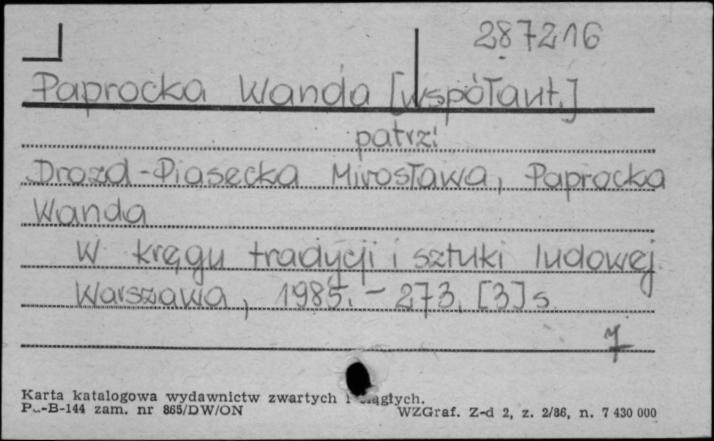 287216
Paprocka Wanda [współaut.]
patrz:
Drozd-Piasecka Mirosława, Paprocka
Wanda
W kręgu tradycji i sztuki ludowej.
Warszawa, 1985. - 273, [3] s.
7
Karta katalogowa wydawnictw zwartych i ciągłych.
Pu-B-144 zam. nr 865/DW/ON
WZGraf. Z-d 2, z. 2/86, n. 7 430 000